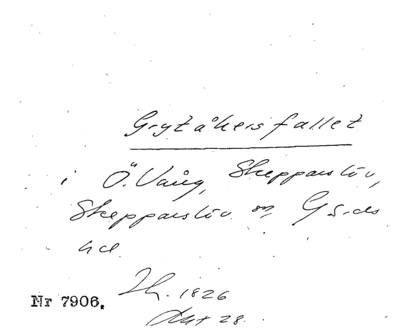 Grytåkersfallet
i Ö. Vång, Skepparslöv,
Skepparslövs sn Gärds
hd.
Nr 7906.
1826